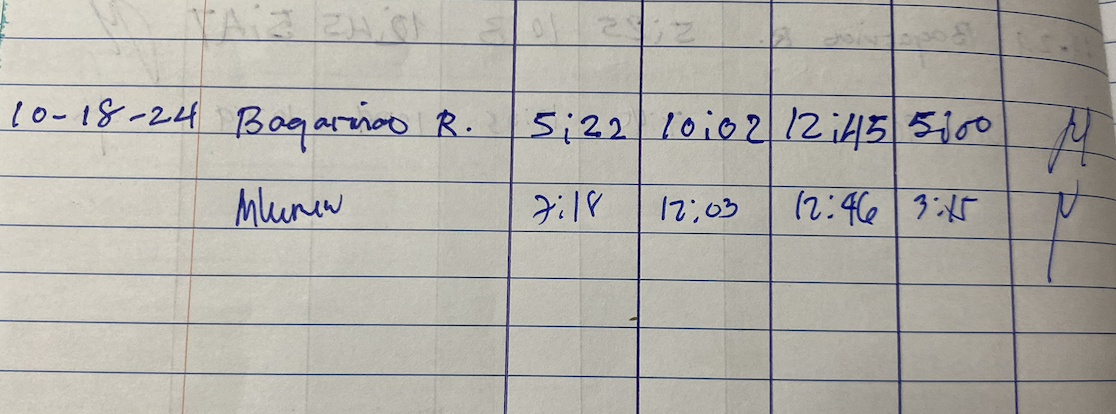 10-18-24 Bagarinao R. 5:22 10:02 12:45 5:00
7:18 12:03 12:46 3:15